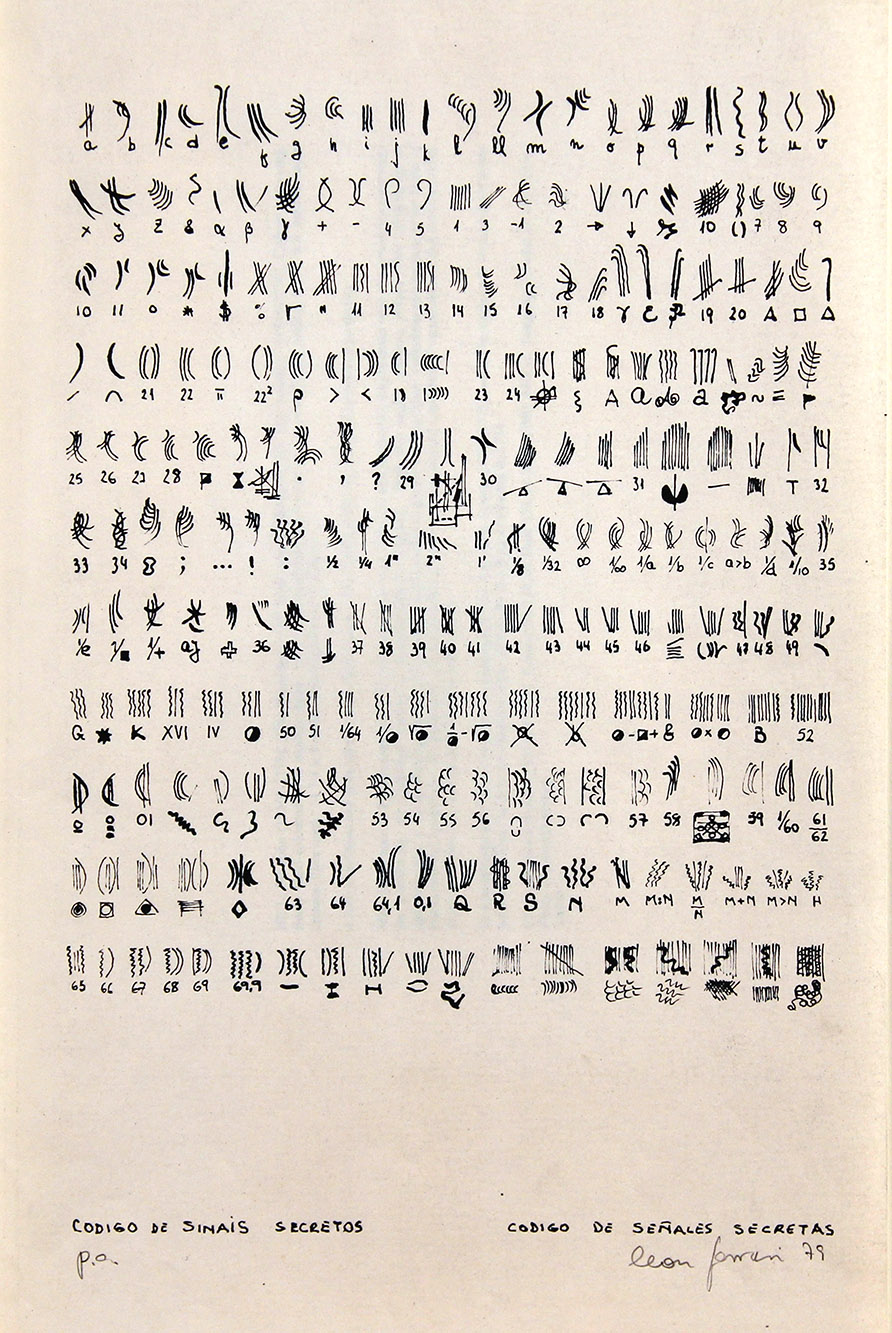 a b c d e f g h i j k l ll m n o p q r s t u v
x y z & α β γ + - 4 5 1 3 -1 2 → ↓ 10 () 7 8 9
10 11 o * $ % r " 11 12 13 14 15 16 17 18 γ 19 20 A □ △
21 22 π 22² p > < 10 1))))) 23 24 A a a ~ =
25 26 27 28 · , ? 29 30 31 — T 32
33 34 8 ; ... ! : 1/2 1/4 1" 2" 1' 1/8 1/32 ∞ 1/∞ 1/a 1/b 1/c a>b 1/d 1/10 35
1/e 1/■ 1/+ 36 37 38 39 40 41 42 43 44 45 46 47 48 49
G * K XVI IV 50 51 1/64 B 52
01 53 54 55 56 57 58 59 1/60 61/62
63 64 64,1 0,1 Q R S N M M:N M/N M+N M>N H
65 66 67 68 69 69,9
CODIGO DE SINAIS SECRETOS CODIGO DE SEÑALES SECRETAS
p.a. leon ferrari 79